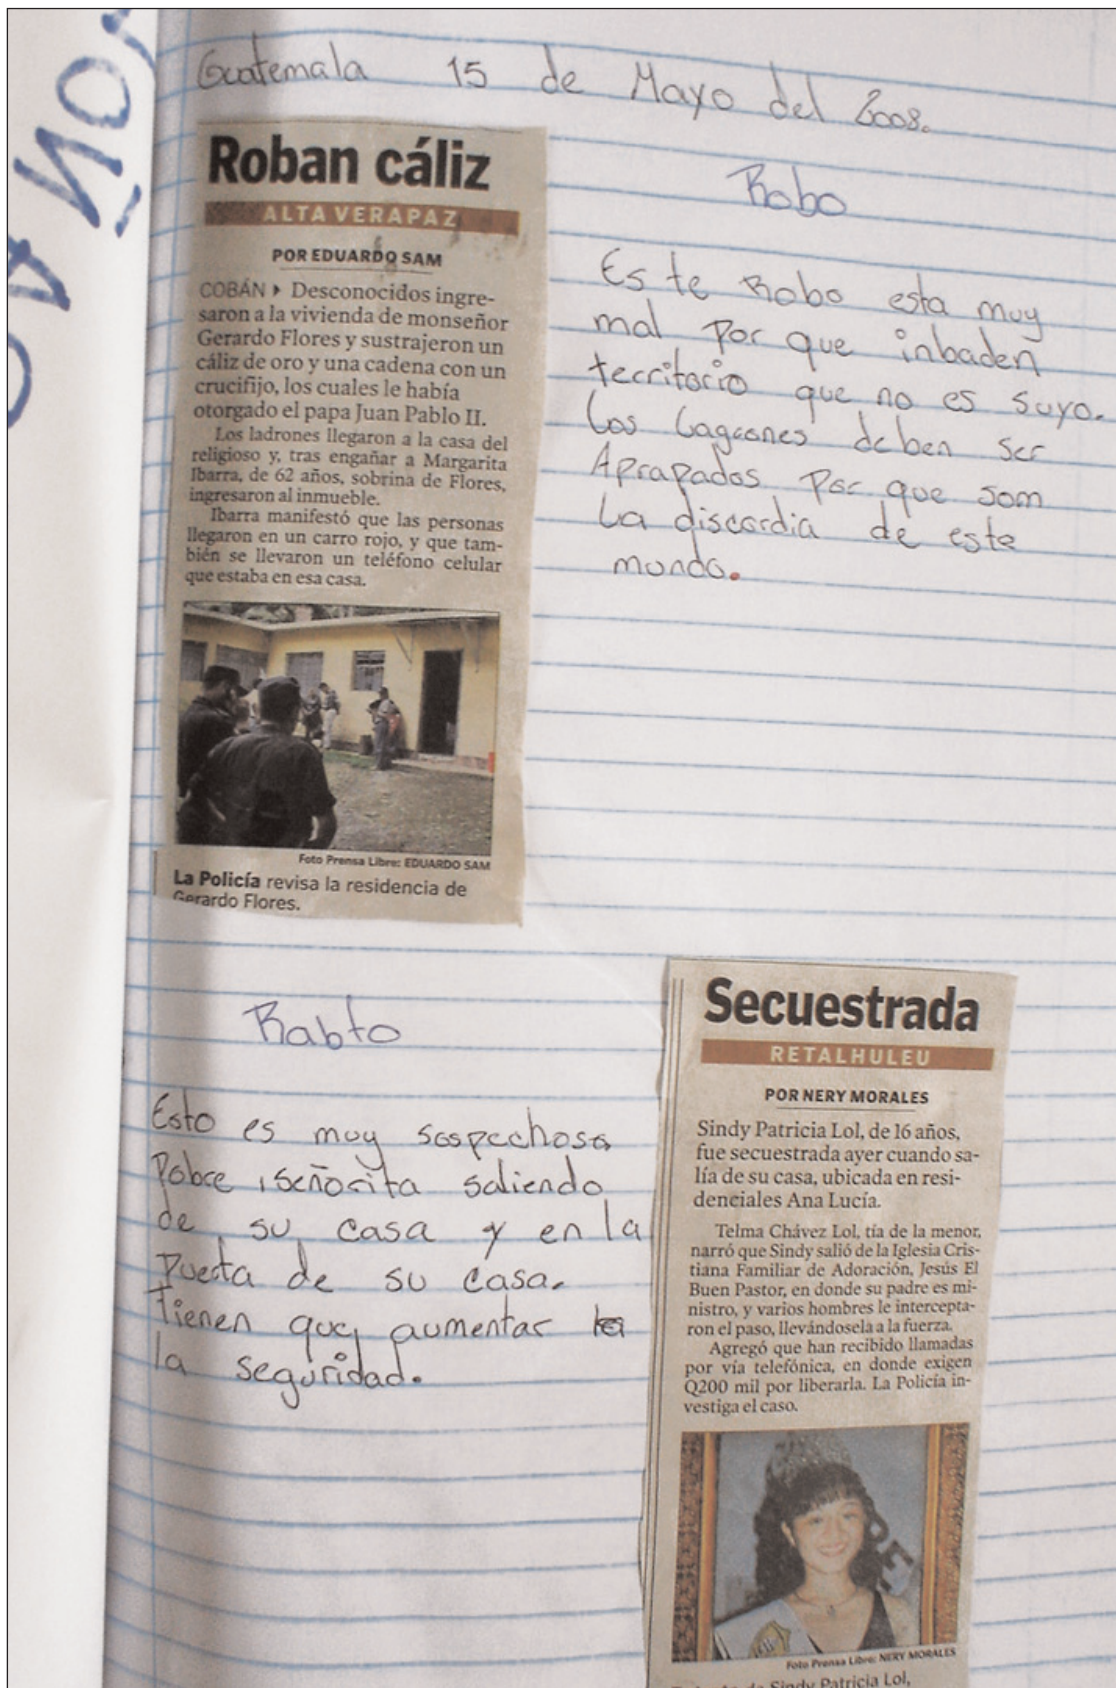 Guatemala 15 de Mayo del 2008.
Roban cáliz
ALTA VERAPAZ
POR EDUARDO SAM
COBÁN ▸ Desconocidos ingre-
saron a la vivienda de monseñor
Gerardo Flores y sustrajeron un
cáliz de oro y una cadena con un
crucifijo, los cuales le había
otorgado el papa Juan Pablo II.
Los ladrones llegaron a la casa del
religioso y, tras engañar a Margarita
Ibarra, de 62 años, sobrina de Flores,
ingresaron al inmueble.
Ibarra manifestó que las personas
llegaron en un carro rojo, y que tam-
bién se llevaron un teléfono celular
que estaba en esa casa.
Foto Prensa Libre: EDUARDO SAM
La Policía revisa la residencia de
Gerardo Flores.
Robo
Es te Robo esta muy
mal Por que inbaden
territorio que no es suyo.
Los Lagrones deben ser
Aprapados Por que som
La discordia de este
mundo.
Rabto
Esto es muy sospechoso
Pobre señorita saliendo
de su casa y en la
Puerta de su casa.
Tienen que aumentar
la seguridad.
Secuestrada
RETALHULEU
POR NERY MORALES
Sindy Patricia Lol, de 16 años,
fue secuestrada ayer cuando sa-
lía de su casa, ubicada en resi-
denciales Ana Lucía.
Telma Chávez Lol, tía de la menor,
narró que Sindy salió de la Iglesia Cris-
tiana Familiar de Adoración, Jesús El
Buen Pastor, en donde su padre es mi-
nistro, y varios hombres le intercepta-
ron el paso, llevándosela a la fuerza.
Agregó que han recibido llamadas
por vía telefónica, en donde exigen
Q200 mil por liberarla. La Policía in-
vestiga el caso.
Foto Prensa Libre: NERY MORALES
de Sindy Patricia Lol,